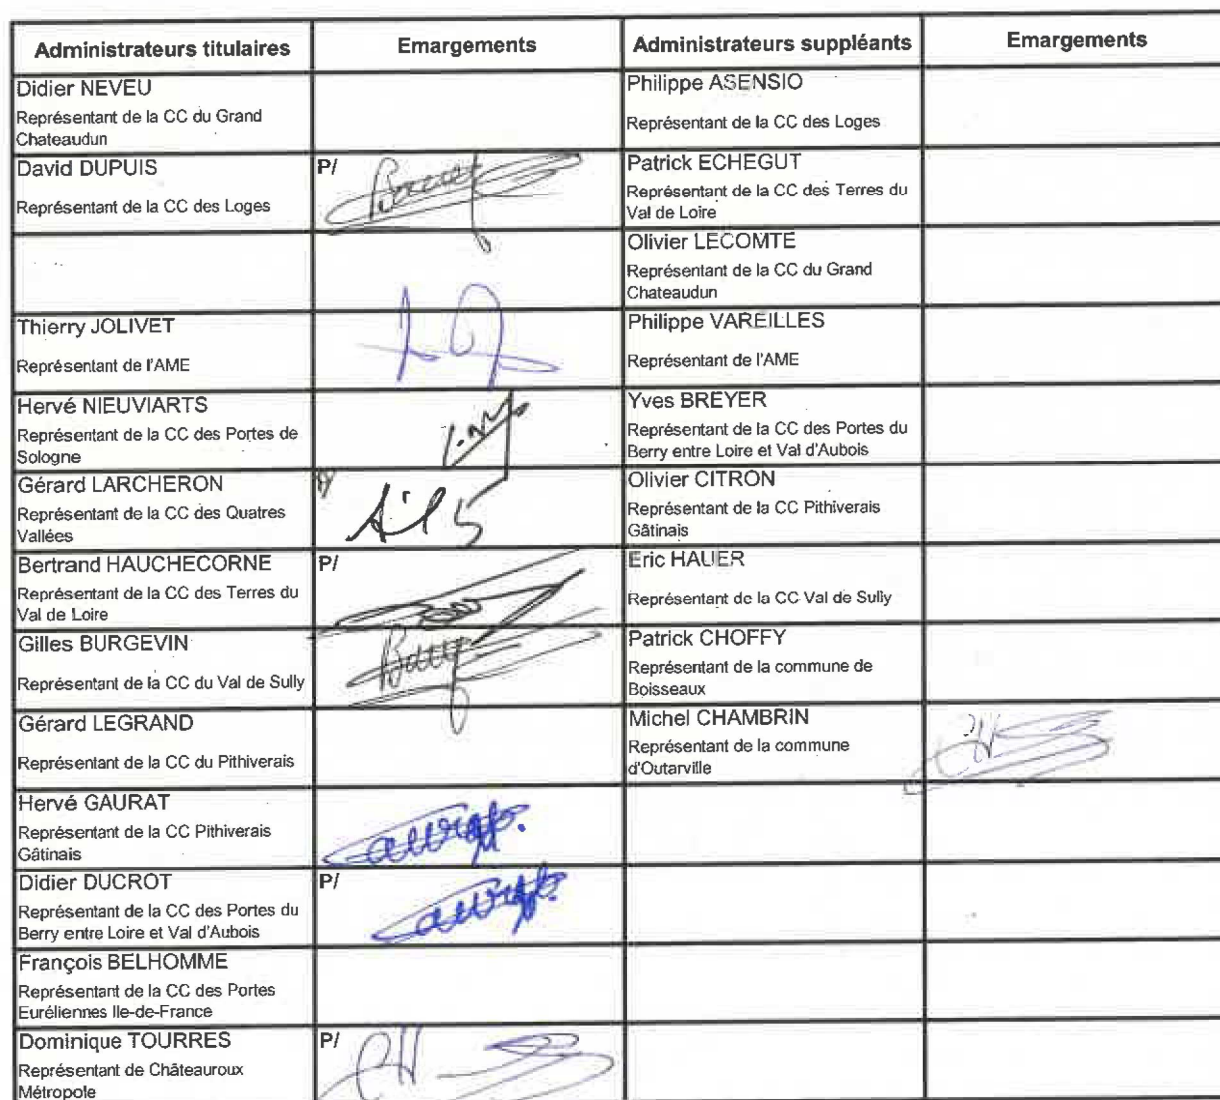 Administrateurs titulaires Emargements Administrateurs suppléants Emargements
Didier NEVEU
Représentant de la CC du Grand
Chateaudun
Philippe ASENSIO
Représentant de la CC des Loges
David DUPUIS
Représentant de la CC des Loges
P/
Patrick ECHEGUT
Représentant de la CC des Terres du
Val de Loire
Olivier LECOMTE
Représentant de la CC du Grand
Chateaudun
Thierry JOLIVET
Représentant de l'AME
Philippe VAREILLES
Représentant de l'AME
Hervé NIEUVIARTS
Représentant de la CC des Portes de
Sologne
Yves BREYER
Représentant de la CC des Portes du
Berry entre Loire et Val d'Aubois
Gérard LARCHERON
Représentant de la CC des Quatres
Vallées
Olivier CITRON
Représentant de la CC Pithiverais
Gâtinais
Bertrand HAUCHECORNE
Représentant de la CC des Terres du
Val de Loire
P/
Eric HAUER
Représentant de la CC Val de Sully
Gilles BURGEVIN
Représentant de la CC du Val de Sully
Patrick CHOFFY
Représentant de la commune de
Boisseaux
Gérard LEGRAND
Représentant de la CC du Pithiverais
Michel CHAMBRIN
Représentant de la commune
d'Outarville
Hervé GAURAT
Représentant de la CC Pithiverais
Gâtinais
Didier DUCROT
Représentant de la CC des Portes du
Berry entre Loire et Val d'Aubois
P/
François BELHOMME
Représentant de la CC des Portes
Euréliennes Ile-de-France
Dominique TOURRES
Représentant de Châteauroux
Métropole
P/